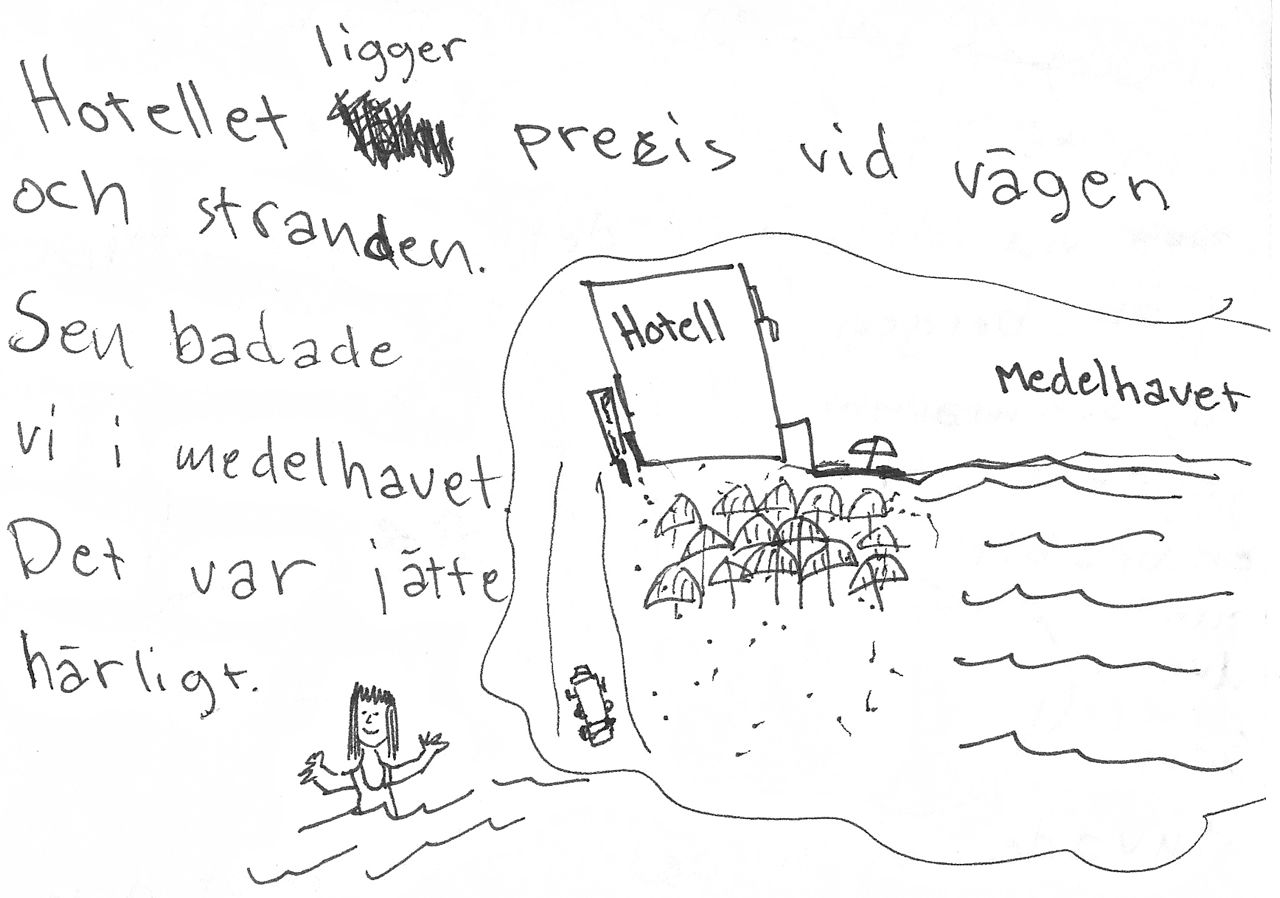 ligger
Hotellet precis vid vägen
och stranden.
Sen badade
vi i medelhavet
Det var jätte
härligt.
Hotell
Medelhavet